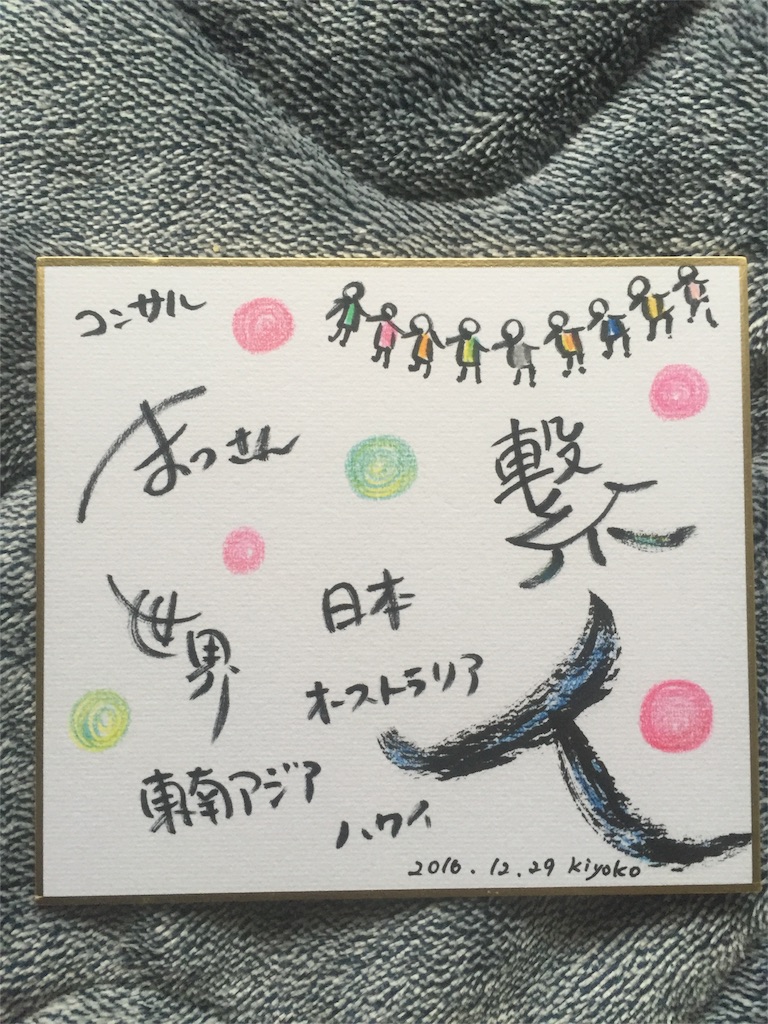 コンサル
まっさん
繋
人
世界
日本
オーストラリア
東南アジア
ハワイ
2016.12.29 kiyoko